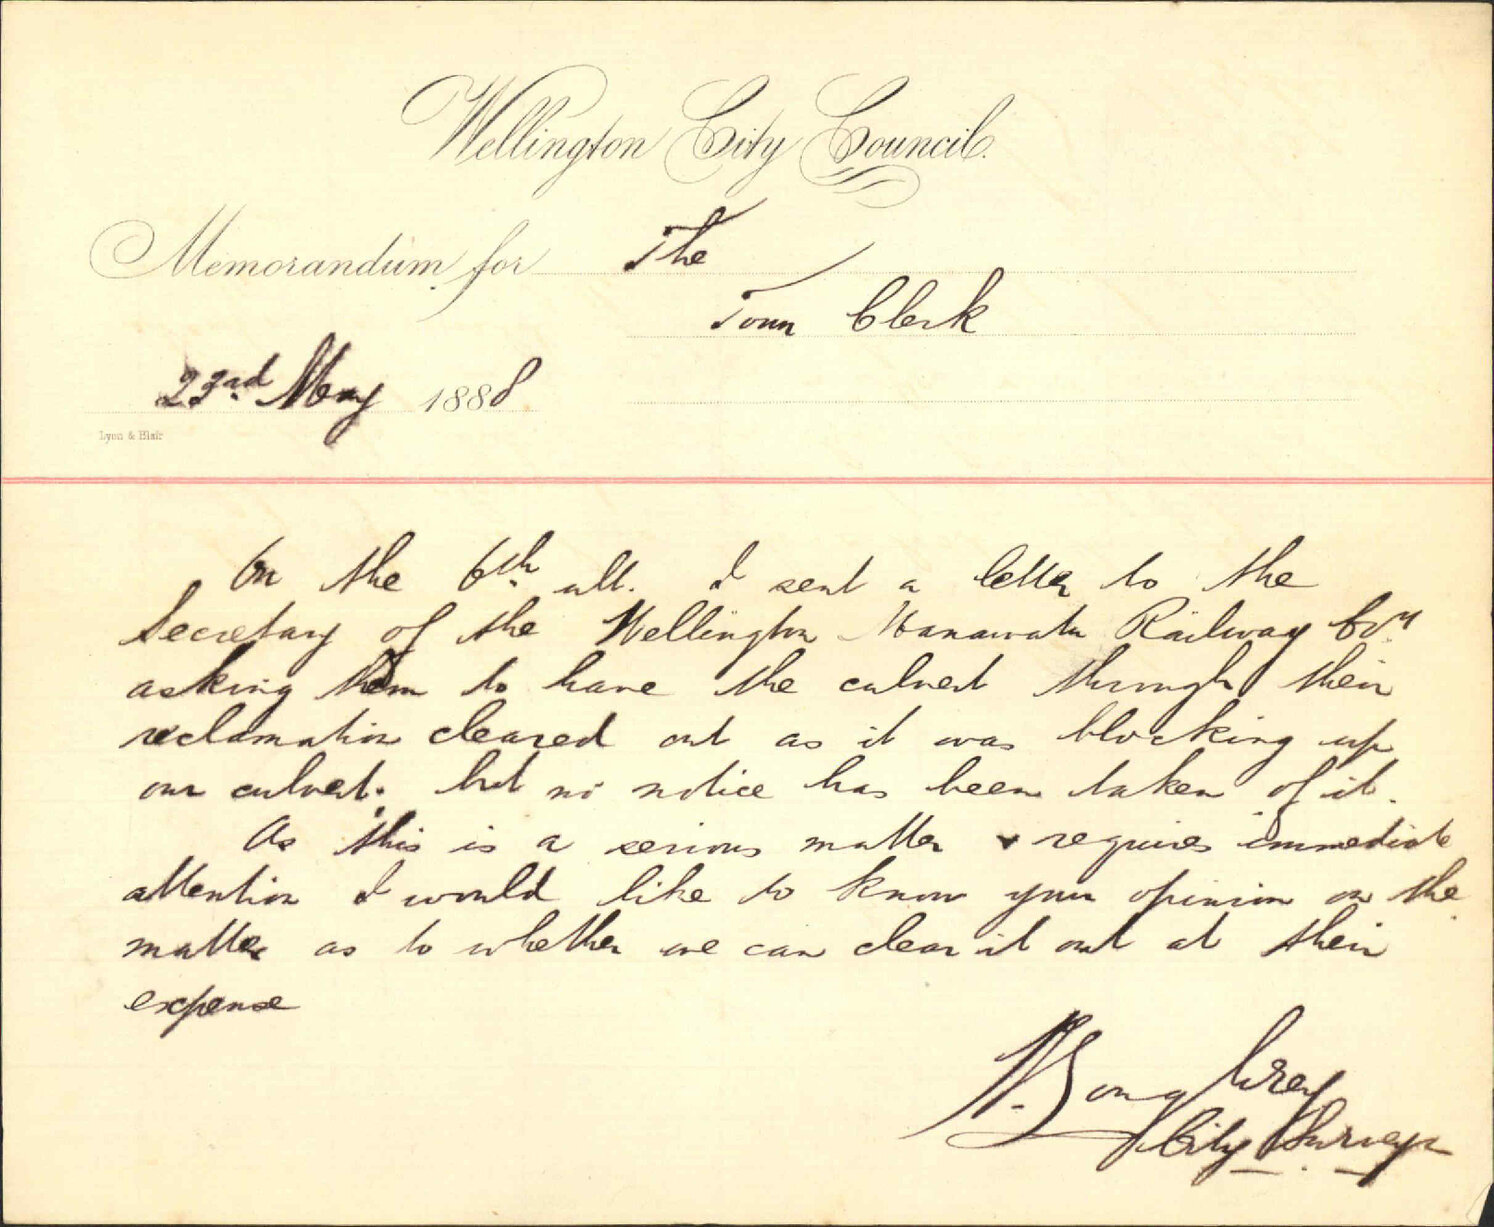 Wellington City Council.
Memorandum for The
Town Clerk
23rd May 1888
Lyon & Blair
On the 6th ult. I sent a letter to the
Secretary of the Wellington Manawatu Railway Coy
asking them to have the culvert through their
reclamation cleared out as it was blocking up
our culvert. but no notice has been taken of it.
As this is a serious matter & requires immediate
attention I would like to know your opinion on the
matter as to whether we can clear it out at their
expense
City Surveyor